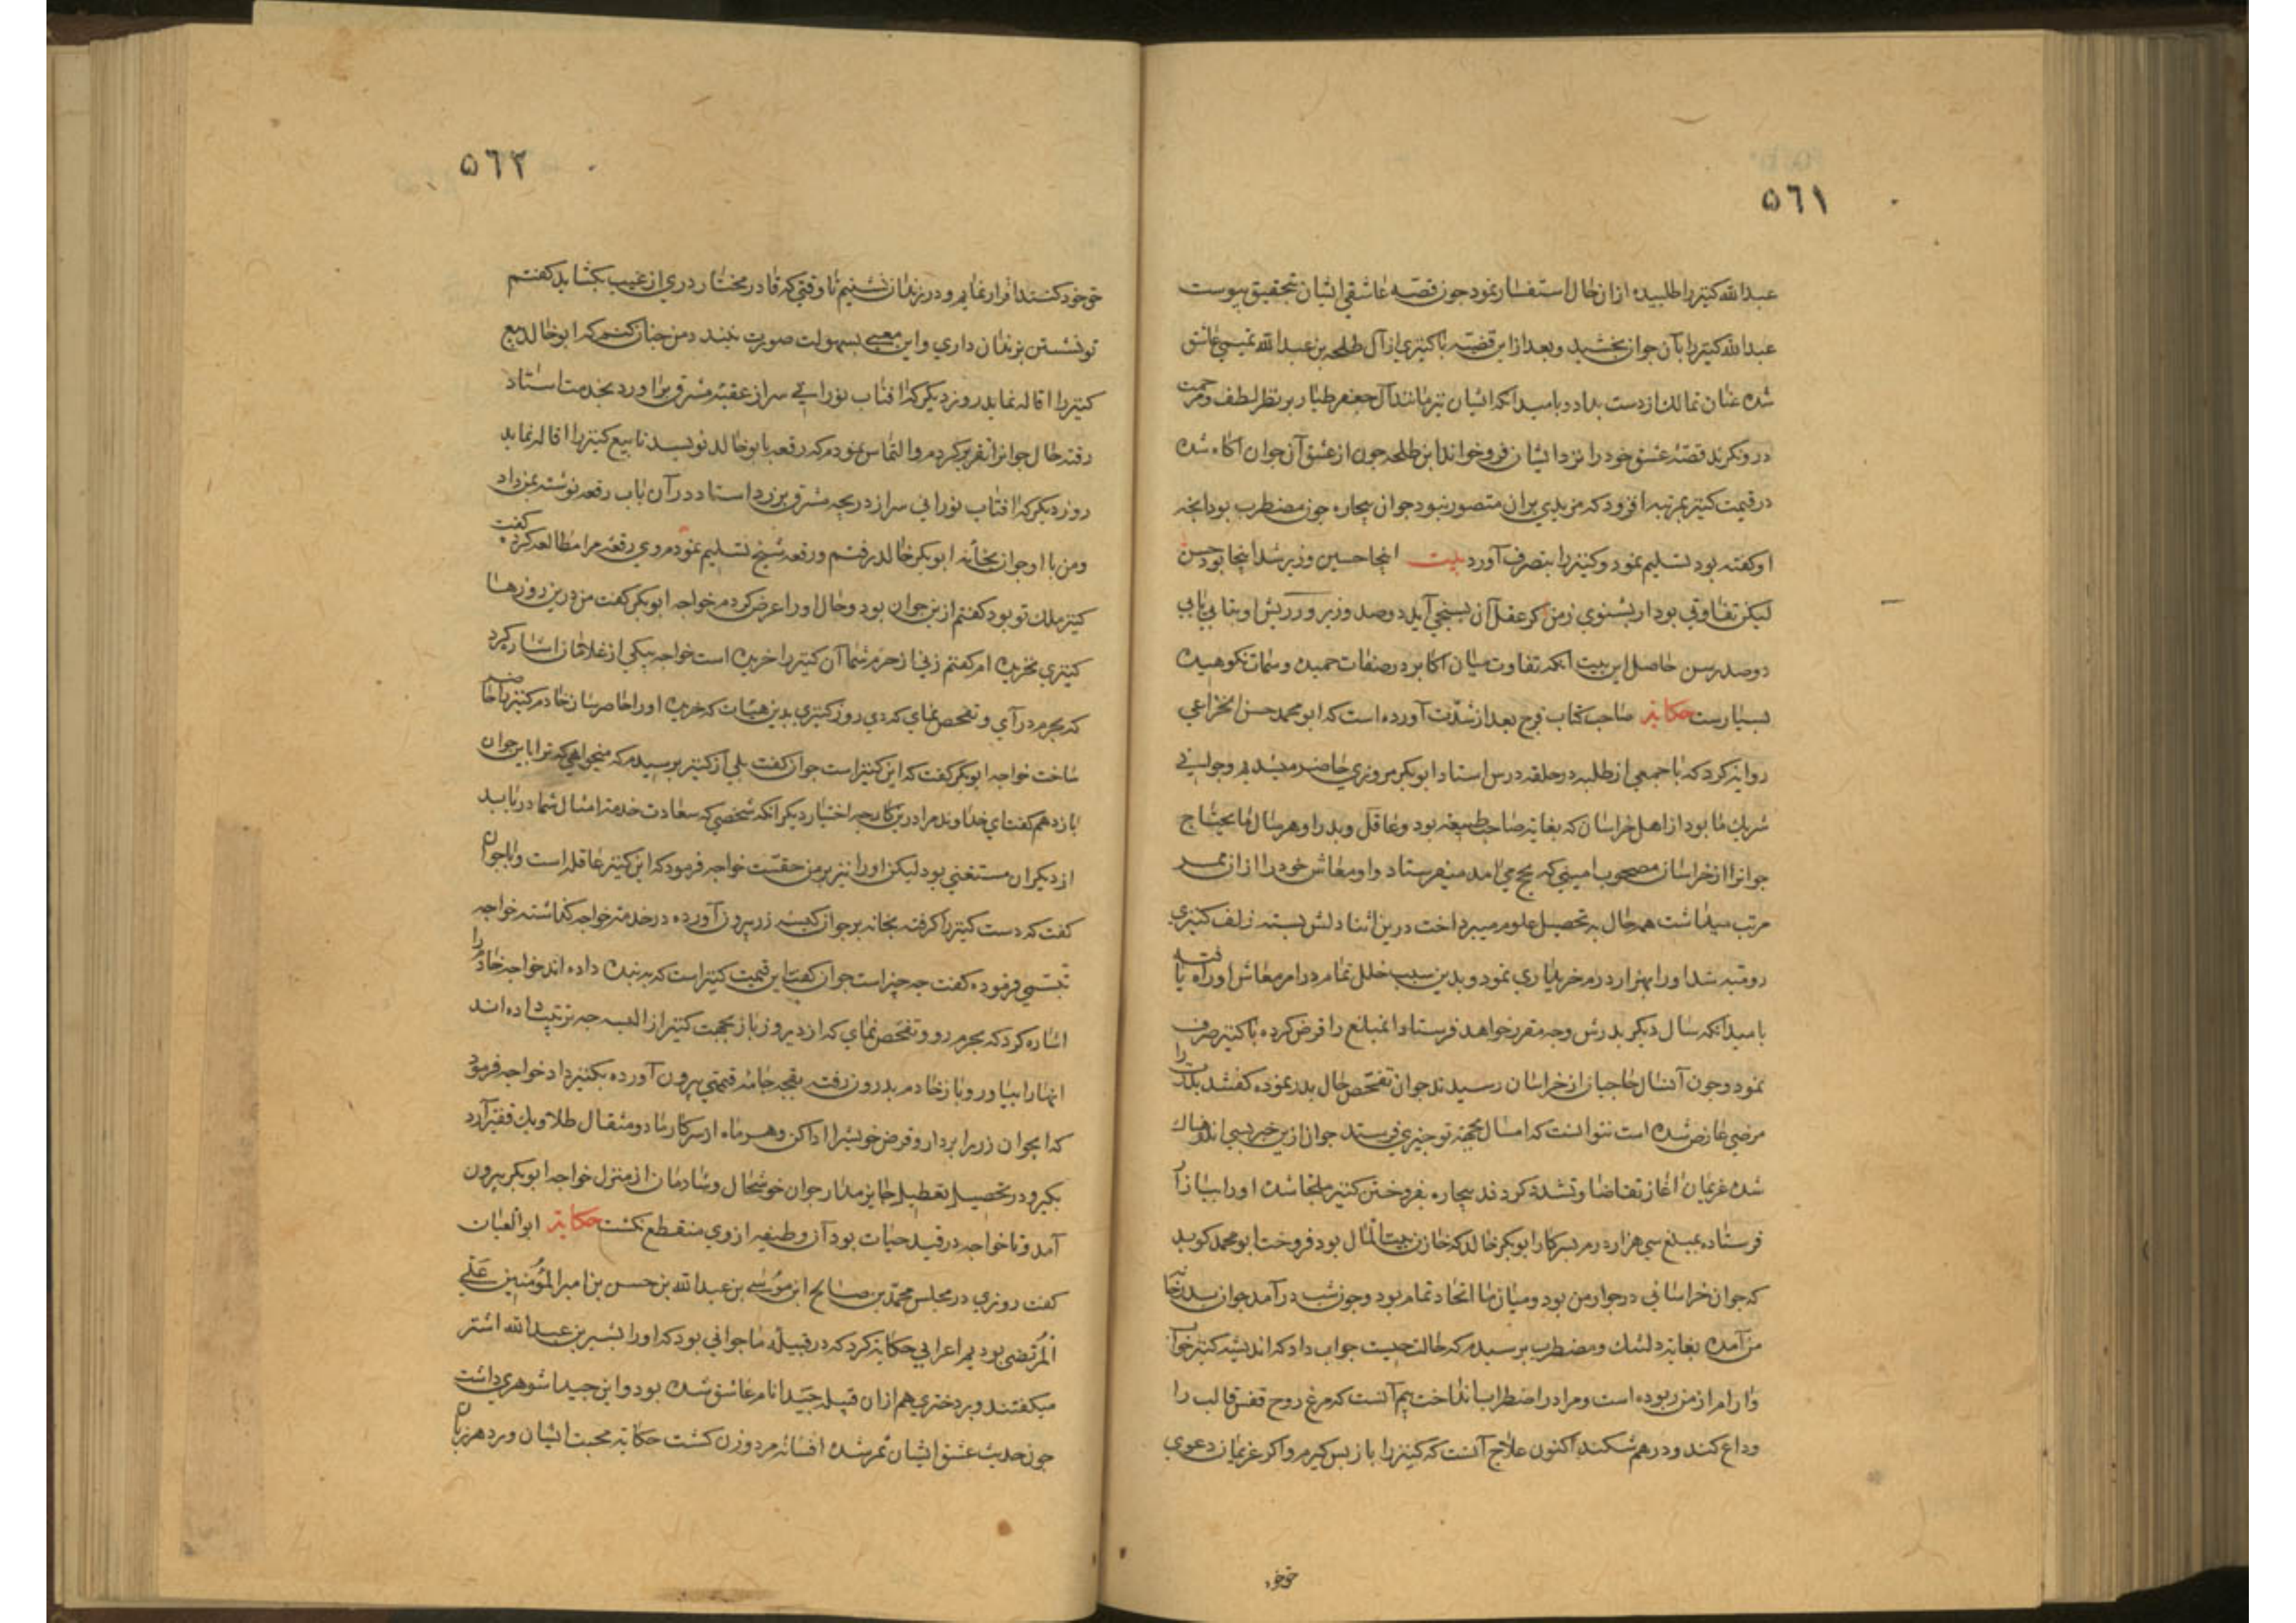 ٥٦١
عبدالله کنیز را طلبیده از ان حال استفسار نمود جون قصه عاشقی ایشان بتحقیق پیوست
عبدالله کنیز را بآن جوان بخشید و بعد از این قضیه با کنیزی از آل طلحه بن عبدالله تمیمی عاشق
شده عنان تمالک از دست بداد و بامید انکه ایشان نیز مانند آل جعفر طیار بر نظر لطف و مرحمت
در ونکرند قصه عشق خود را نزد ایشان فرو خواند ابن طلحه جون از عشق آن جوان اکاه شده
در قیمت کنیز بمرتبه افزود که مزیدی بران متصور نبود جوان بیچاره جون مضطرب بود انچه
او کفته بود تسلیم نمود و کنیز را بتصرف آورد بیت اینجا حسین وزیر شد اینجا بود حسن
لیکن تفاوتی بود ار بشنوی زمن کر عقل آن بسنجی آید دو صد وزیر ور ریش او بتابی یابی
دو صد رسن حاصل این بیت انکه تفاوت میان اکابر در صفات حمیده و سمات نکوهیده
بسیارست حکایة صاحب کتاب فرج بعد از شدت آورده است که ابو محمد حسن الخزاعی
روایة کرد که با جمعی از طلبه در حلقه درس استاد ابوبکر مروزی حاضر میشدیم و جوانی
شریک ما بود از اهل خراسان که بغایة صاحب طبیعه بود و عاقل و بدر او هر سال ما یحتاج
جوانرا از خراسان مصحوب امینی که بحج می آمد میفرستاد و او معاش خود را از ان ممر
مرتب میداشت همه حال به تحصیل علوم میپرداخت درین اثنا دلش بسته زلف کنیزی
رومیه شد او را بهزار درم خریداری نمود و بدین سبب خلل تمام در امر معاش او راه یافته
بامید انکه سال دیکر بدرش وجه مقرر خواهد فرستاد انمبلغ را قرض کرده با کنیز صرف
نمود و جون آنسال حاجیان از خراسان رسیدند جوان تفحص حال بدر نموده کفتند بدرت را
مرضی عارض شده است نتوانست که امسال بجهة تو جیزی فرستد جوان ازین خبر بسی اندوهناک
شده غریمان اغاز تقاضا و تشدد کردند بیچاره بفروختن کنیز ملجا شده او را ببازار
فرستاده بمبلغ سی هزار درم بسرکار ابوبکر خالد که خازن بیت المال بود فروخت ابو محمد کوید
که جوان خراسانی در جوار من بود و میان ما اتحاد تمام بود و جون شب در آمد جوان بدر خانه
من آمده بغایة دلتنک و مضطرب برسیدم که حالت جیست جواب داد که اندیشه کنیز خواب
و ارام از من ربوده است و مرا در اضطراب انداخت بیم آنست که مرغ روح قفس قالب را
وداع کند و درهم شکند اکنون علاج آنست که کنیز را باز بس کیرم و اکر غریمان دعوی
حق خود
٥٦٢
حق خود کنند اقرار نمایم و در زندان نشینم تا وقتی که قادر مختار دری از غیب بکشاید کفتم
تو نشستن بزندان داری و این معنی بسهولت صورت نبندد من جنان کنم که ابو خالد بیع
کنیز را اقاله نماید روز دیکر که افتاب نورانی سر از عقبه مشرق بر اورد بخدمت استاد
رفته حال جوانرا تقریر کردم و التماس نمودم که رقعه بابو خالد نویسد تا بیع کنیز را اقاله نماید
روز دیکر که افتاب نورانی سر از دریچه مشرق بر زد استاد در آن باب رقعه نوشته بمن داد
و من با او جوان بخانه ابوبکر خالد رفتم و رقعه شیخ تسلیم نمودم وی رقعه مرا مطالعه کرده کفت
کنیز ملک تو بود کفتم از بن جوان بود و حال او را عرض کردم خواجه ابوبکر کفت من درین روزها
کنیزی نخریده ام کفتم زنی از حرم شما آن کنیز را خریده است خواجه بیکی از غلامان اشاره کرد
که بحرم درآی و تفحص نمای که دی روز کنیزی بدین هیات که خریده او را حاضر ساز خادم کنیز را حاضر
ساخت خواجه ابوبکر کفت که این کنیز است جوان کفت بلی از کنیز برسیدم که میخواهی که ترا باین جوان
باز دهم کفت ای خداوند مرا درین کار جه اختیار دیکر انکه شخصی که سعادت خدمة امثال شما دریابد
از دیکران مستغنی بود لیکن او را نیز بر من حقست خواجه فرمود که این کنیز عاقله است و باجوان
کفت که دست کنیز را کرفته بخانه بر جوان کیسه زر بیرون آورده در خدمة خواجه کذاشته خواجه
تبسمی فرموده کفت جه جیز است جوان کفت این قیمت کنیز است که به بنده داده اند خواجه خادم را
اشاره کرد که بحرم رو و تفحص نمای که از دیروز باز بجهت کنیز از البسه جه ترتیب داده اند
انها را بیاور و باز خادم بدرون رفته بقجه جامه قیمتی بیرون آورده بکنیز داد خواجه فرمود
که ایجوان زر را بردار و قرض خویش را ادا کن و هر ماه از سرکار ما دو مثقال طلا و یک قفیز آرد
بکیر و در تحصیل تعطیل جایز مدار جوان خوشحال و شادمان از منزل خواجه ابوبکر بیرون
آمد و تا خواجه در قید حیات بود آن وظیفه از وی منقطع نکشت حکایة ابوالعبان
کفت روزی در مجلس محمد بن صالح ابن موسی بن عبدالله بن حسن بن امیرالمؤمنین علی
المرتضی بودیم اعرابی حکایة کرد که در قبیله ما جوانی بود که او را بشیر بن عبدالله اشتر
میکفتند و بر دختری هم از ان قبیله جیدا نام عاشق شده بود و این جیدا شوهری داشت
جون حدیث عشق ایشان ثمر شده افسانه مرد و زن کشت حکایة محبت ایشان ورد هر زبان